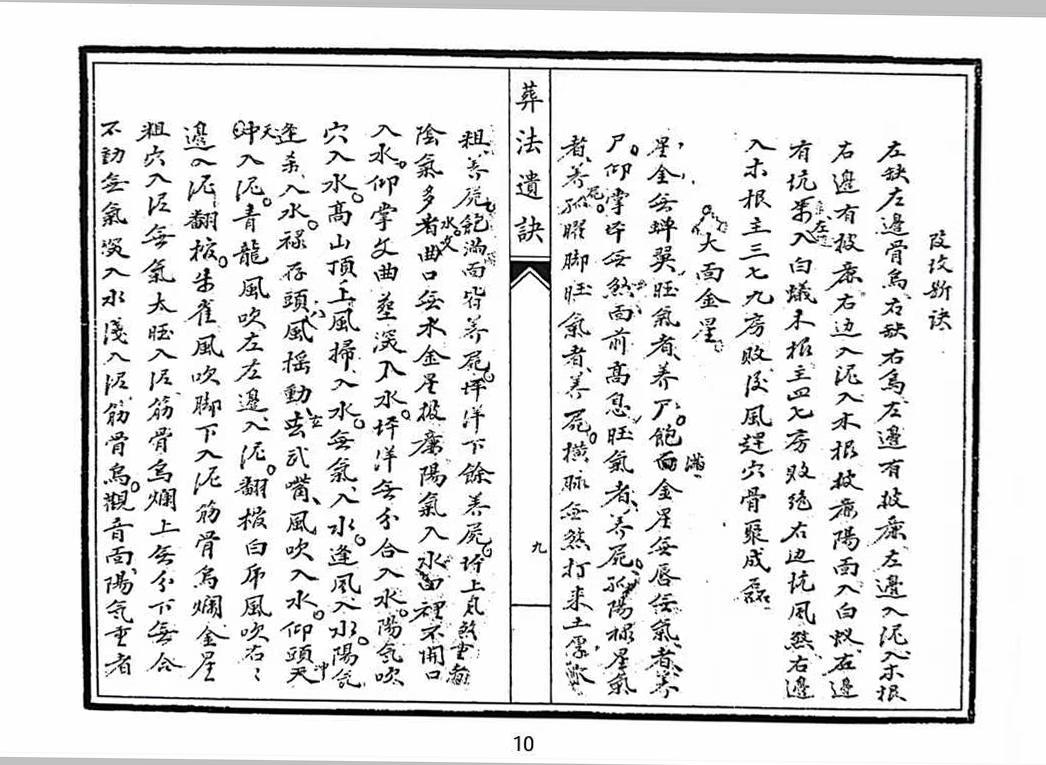 改坟断诀
左缺左邊骨烏右缺右烏左邊有披廉左邊入泥入木根
右邊有披廉右边入泥入木根披廉陽面入白蚁在邊
有坑煞左入白蟻木根主四七房敗绝右边坑风煞右邊
入木根主三七九房敗后風趕穴骨聚成磊
大面金星
星金無蝉翼旺氣者養尸飽面滿金星無唇無氣者养
尸仰掌坪無煞面前高息旺氣者养屍孤陽祿星氣
者养屍孤曜脚旺氣者养屍橫脉無煞打来土厚
葬法遺訣
九
粗养屍飽滿面皆养屍坪洋下餘养屍坪上瓦煞重者
陰氣多者水火曲口無水金星披廉陽氣入水田裡不開口
入水仰掌文曲葬深入水坪洋無分合入水陽氣吹
穴入水高山頂上風掃入水無氣入水逢風入水陽氣
逢煞入水祿存頭風八摇動玄武嘴風吹入水仰頭天
天冲入泥青龍風吹左左邊入泥翻棺白虎風吹右右
邊入泥翻棺朱雀風吹脚下入泥筋骨烏爛金星
粗穴入泥無氣太旺入泥筋骨烏爛上無分下無合
不動無氣深入水淺入泥筋骨烏觀音面陽气重者
10